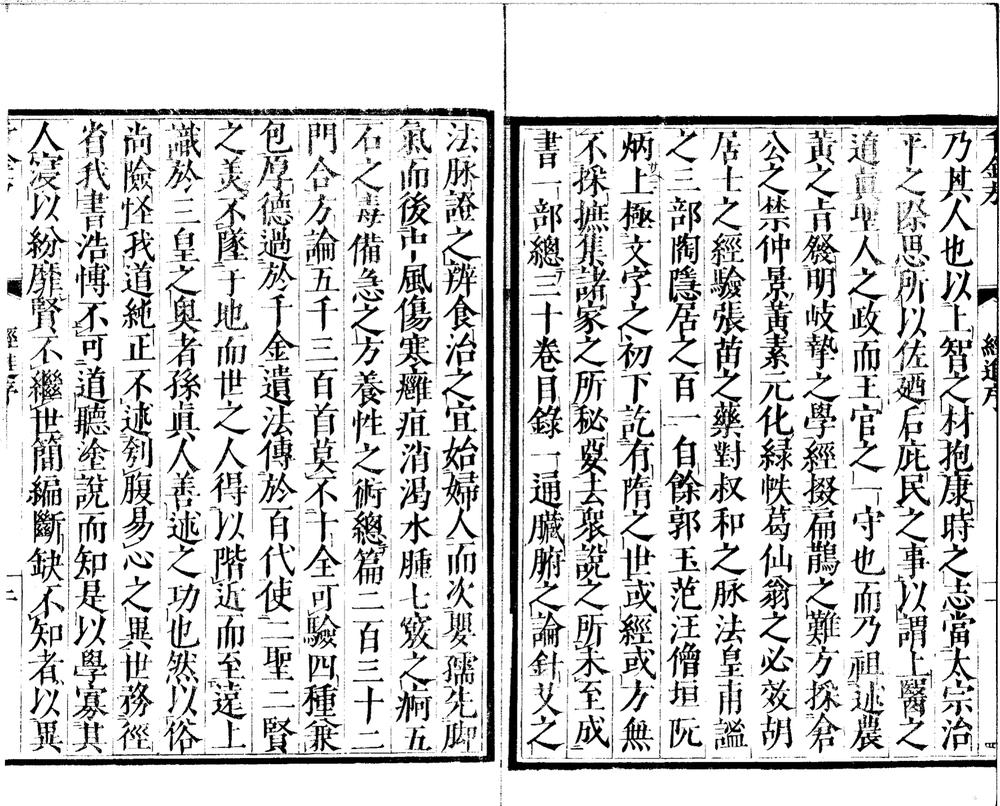 乃其人也以上智之材抱康時之志當太宗治
平之際思所以佐廼后庇民之事以謂上醫之
道眞聖人之政而王官之一守也而乃祖述農
黃之旨發明岐摯之學經掇扁鵲之難方採倉
公之禁仲景黃素元化緑帙葛仙翁之必效胡
居士之經驗張苗之藥對叔和之脉法皇甫謐
之三部陶隱居之百一自餘郭玉范汪僧垣阮
炳上極文字之初下訖有隋之世或經或方無
不採摭集諸家之所秘要去衆說之所未至成
書一部總三十卷目錄一通臟腑之論針艾之
法脉證之辨食治之宜始婦人而次嬰孺先脚
氣而後中風傷寒癰疽消渴水腫七竅之痾五
石之毒備急之方養性之術總篇二百三十二
門合方論五千三百首莫不十全可驗四種兼
包厚德過於千金遺法傳於百代使二聖二賢
之美不墜于地而世之人得以階近而至遠上
識於三皇之奧者孫眞人善述之功也然以俗
尚險怪我道純正不述刳腹易心之異世務徑
省我書浩慱不可道聽塗說而知是以學寡其
人寖以紛靡賢不繼世簡編斷缺不知者以異